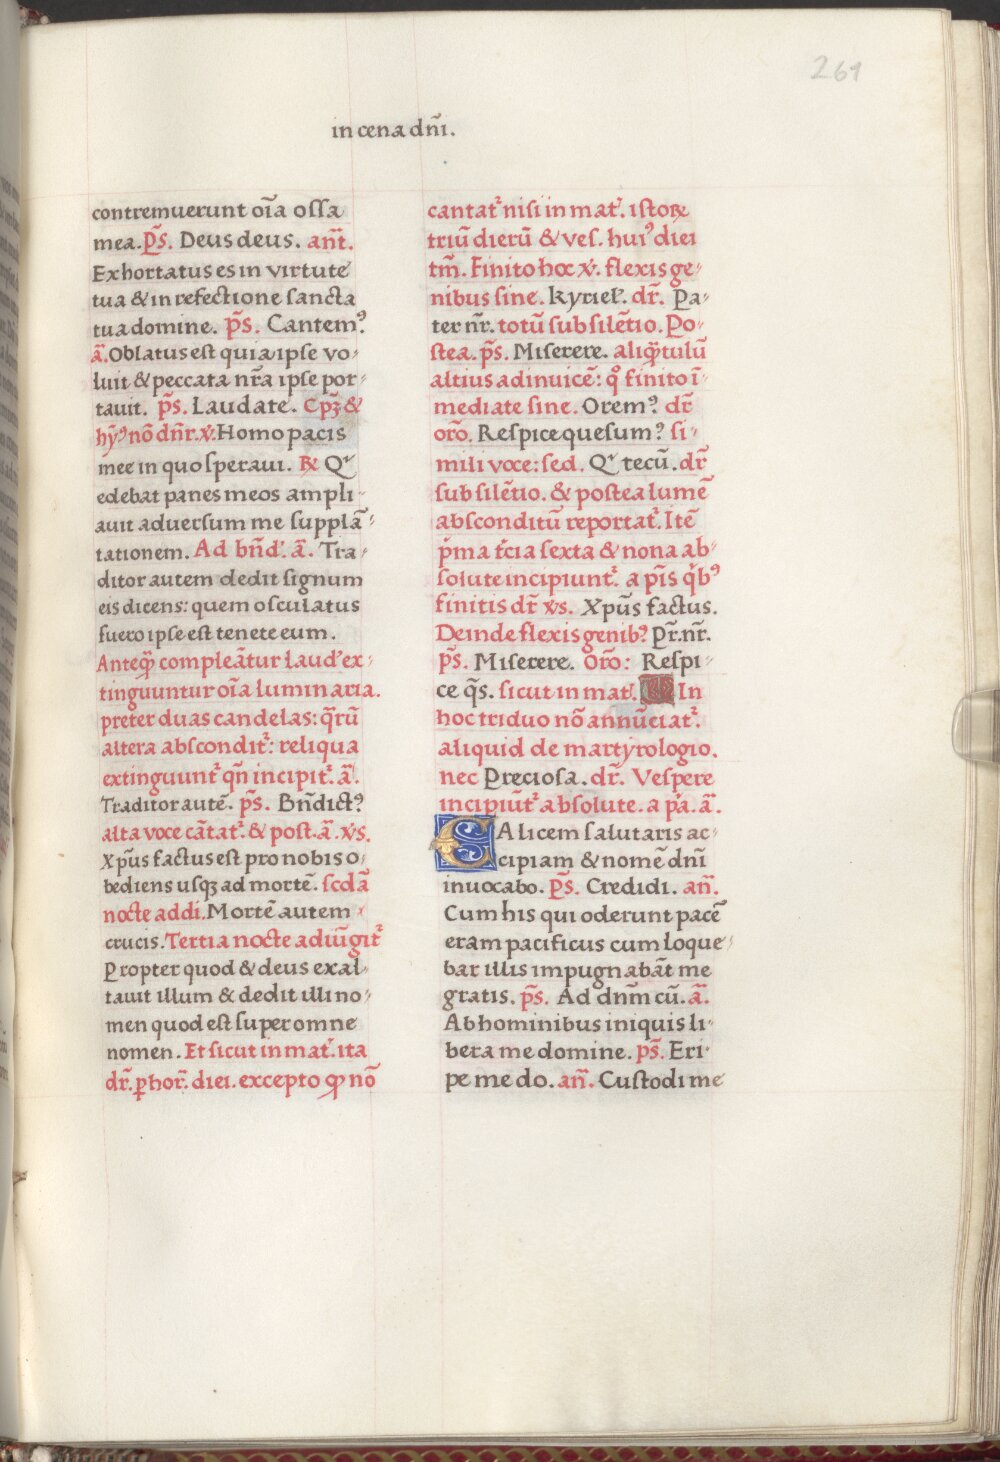 261
in cena dñi.
contremuerunt oĩa ossa
mea. p̃s. Deus deus. añt.
Exhortatus es in virtute
tua & in refectione sancta
tua domine. p̃s. Cantemꝰ
ã. Oblatus est quia ipse vo-
luit & peccata nr̃a ipse por-
tauit. p̃s. Laudate. Cpꝫ &
hỹꝰ nõ dñr. v̾. Homo pacis
mee in quo speraui. ℞ Qr
edebat panes meos ampli-
auit aduersum me supplã-
tationem. Ad bñd'. ã. Tra-
ditor autem dedit signum
eis dicens: quem osculatus
fuero ipse est tenete eum.
Anteq̃ compleãtur laud' ex-
tinguuntur oĩa luminaria.
preter duas candelas: q̃rũ
altera abscondit᷑: reliqua
extinguunt᷑ qñ incipit᷑. ã.
Traditor autẽ. p̃s. Bñdictꝰ
alta voce cãtat᷑. & post. ã. v̾s.
Xpũs factus est pro nobis o-
bediens usqꝫ ad mortẽ. scdã
nocte addi. Mortẽ autem
crucis. Tertia nocte adiũgit᷑
Propter quod & deus exal-
tauit illum & dedit illi no-
men quod est super omne
nomen. Et sicut in mat᷑. ita
dr̃. ꝑ hor̃. diei. excepto ꝙ nõ
cantat᷑ nisi in mat᷑. istoꝝ
triũ dierũ & ves. huiꝰ diei
tm̃. Finito hoc v̾. flexis ge-
nibus sine. kyriel̃. dr̃. Pa-
ter nr̃. totũ sub silẽtio. Po-
stea. p̃s. Miserere. aliq̃tulũ
altius adinuicẽ: qº finito ĩ-
mediate sine. Oremꝰ. dr̃
orõ. Respice quesumꝰ. si-
mili voce: sed. Qr tecũ. dr̃
sub silẽtio. & postea lumẽ
absconditũ reportat᷑. Itẽ
p̃ma t̃cia sexta & nona ab-
solute incipiunt᷑ a p̃is q̃bꝰ
finitis dr̃ v̾s. Xpũs factus.
Deinde flexis genibꝰ Pr̃. nr̃.
p̃s. Miserere. Orõ: Respi-
ce q̃s. sicut in mat᷑. In
hoc triduo nõ annũciat᷑.
aliquid de martyrologio.
nec Preciosa. dr̃. Vespere
incipiũt᷑ absolute. a p̃a. ã.
CAlicem salutaris ac-
cipiam & nomẽ dñi
inuocabo. p̃s. Credidi. añ.
Cum his qui oderunt pacẽ
eram pacificus cum loque-
bar illis impugnabãt me
gratis. p̃s. Ad dñm cũ. ã.
Ab hominibus iniquis li-
bera me domine. p̃s. Eri-
pe me do. añ. Custodi me